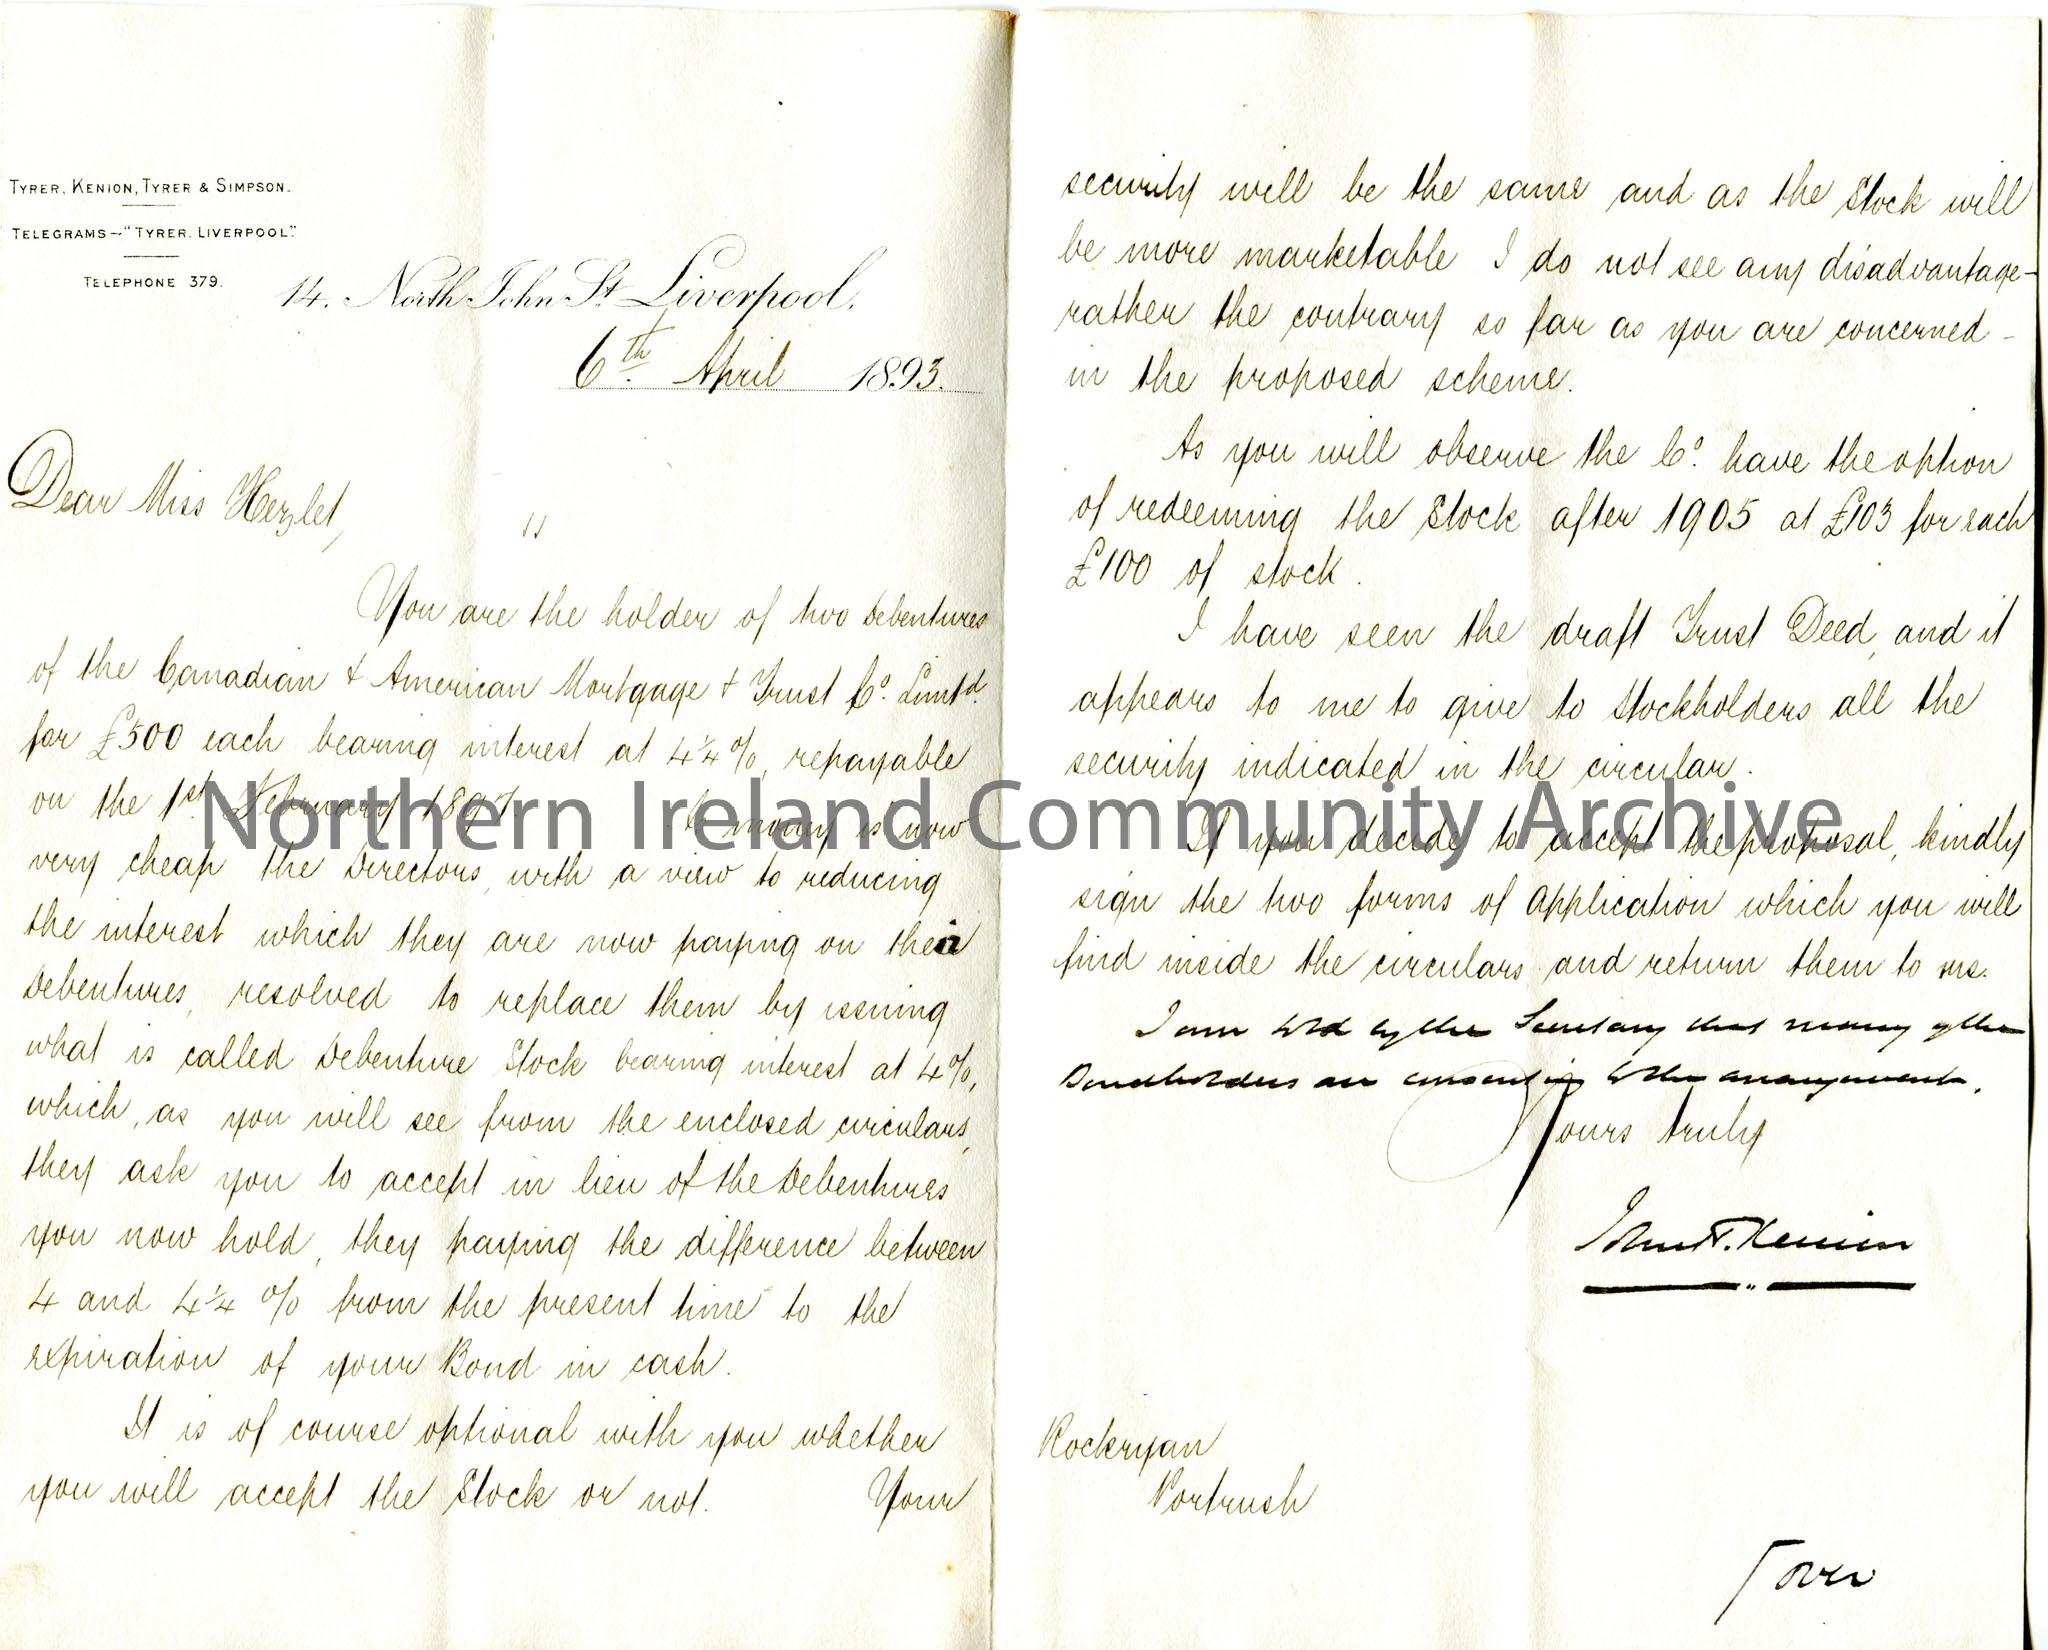 TYRER, KENION, TYRER & SIMPSON.
TELEGRAMS—"TYRER. LIVERPOOL."
TELEPHONE 379.
14. North John St. Liverpool.
6th. April 1893.
Dear Miss Hezlet,
You are the holder of two Debentures
of the Canadian & American Mortgage & Trust Co. Limtd.
for £500 each bearing interest at 4¼%, repayable
on the 1st. February 1897. As money is now
very cheap the Directors, with a view to reducing
the interest which they are now paying on their
Debentures, resolved to replace them by issuing
what is called Debenture Stock bearing interest at 4%,
which, as you will see from the enclosed circulars,
they ask you to accept in lieu of the Debentures
you now hold, they paying the difference between
4 and 4¼ % from the present time to the
expiration of your Bond in cash.
It is of course optional with you whether
you will accept the Stock or not. Your
security will be the same and as the Stock will
be more marketable I do not see any disadvantage-
rather the contrary so far as you are concerned -
in the proposed scheme.
As you will observe the Co. have the option
of redeeming the Stock after 1905 at £103 for each
£100 of stock.
I have seen the draft Trust Deed, and it
appears to me to give to Stockholders all the
security indicated in the circular.
If you decide to accept the proposal, kindly
sign the two forms of Application which you will
find inside the circulars and return them to me.
I am told by the Secretary that many of the
Bondholders are consenting to the arrangement.
Yours truly
John T. Kenion
Rockryan
Portrush
Over
Northern Ireland Community Archive